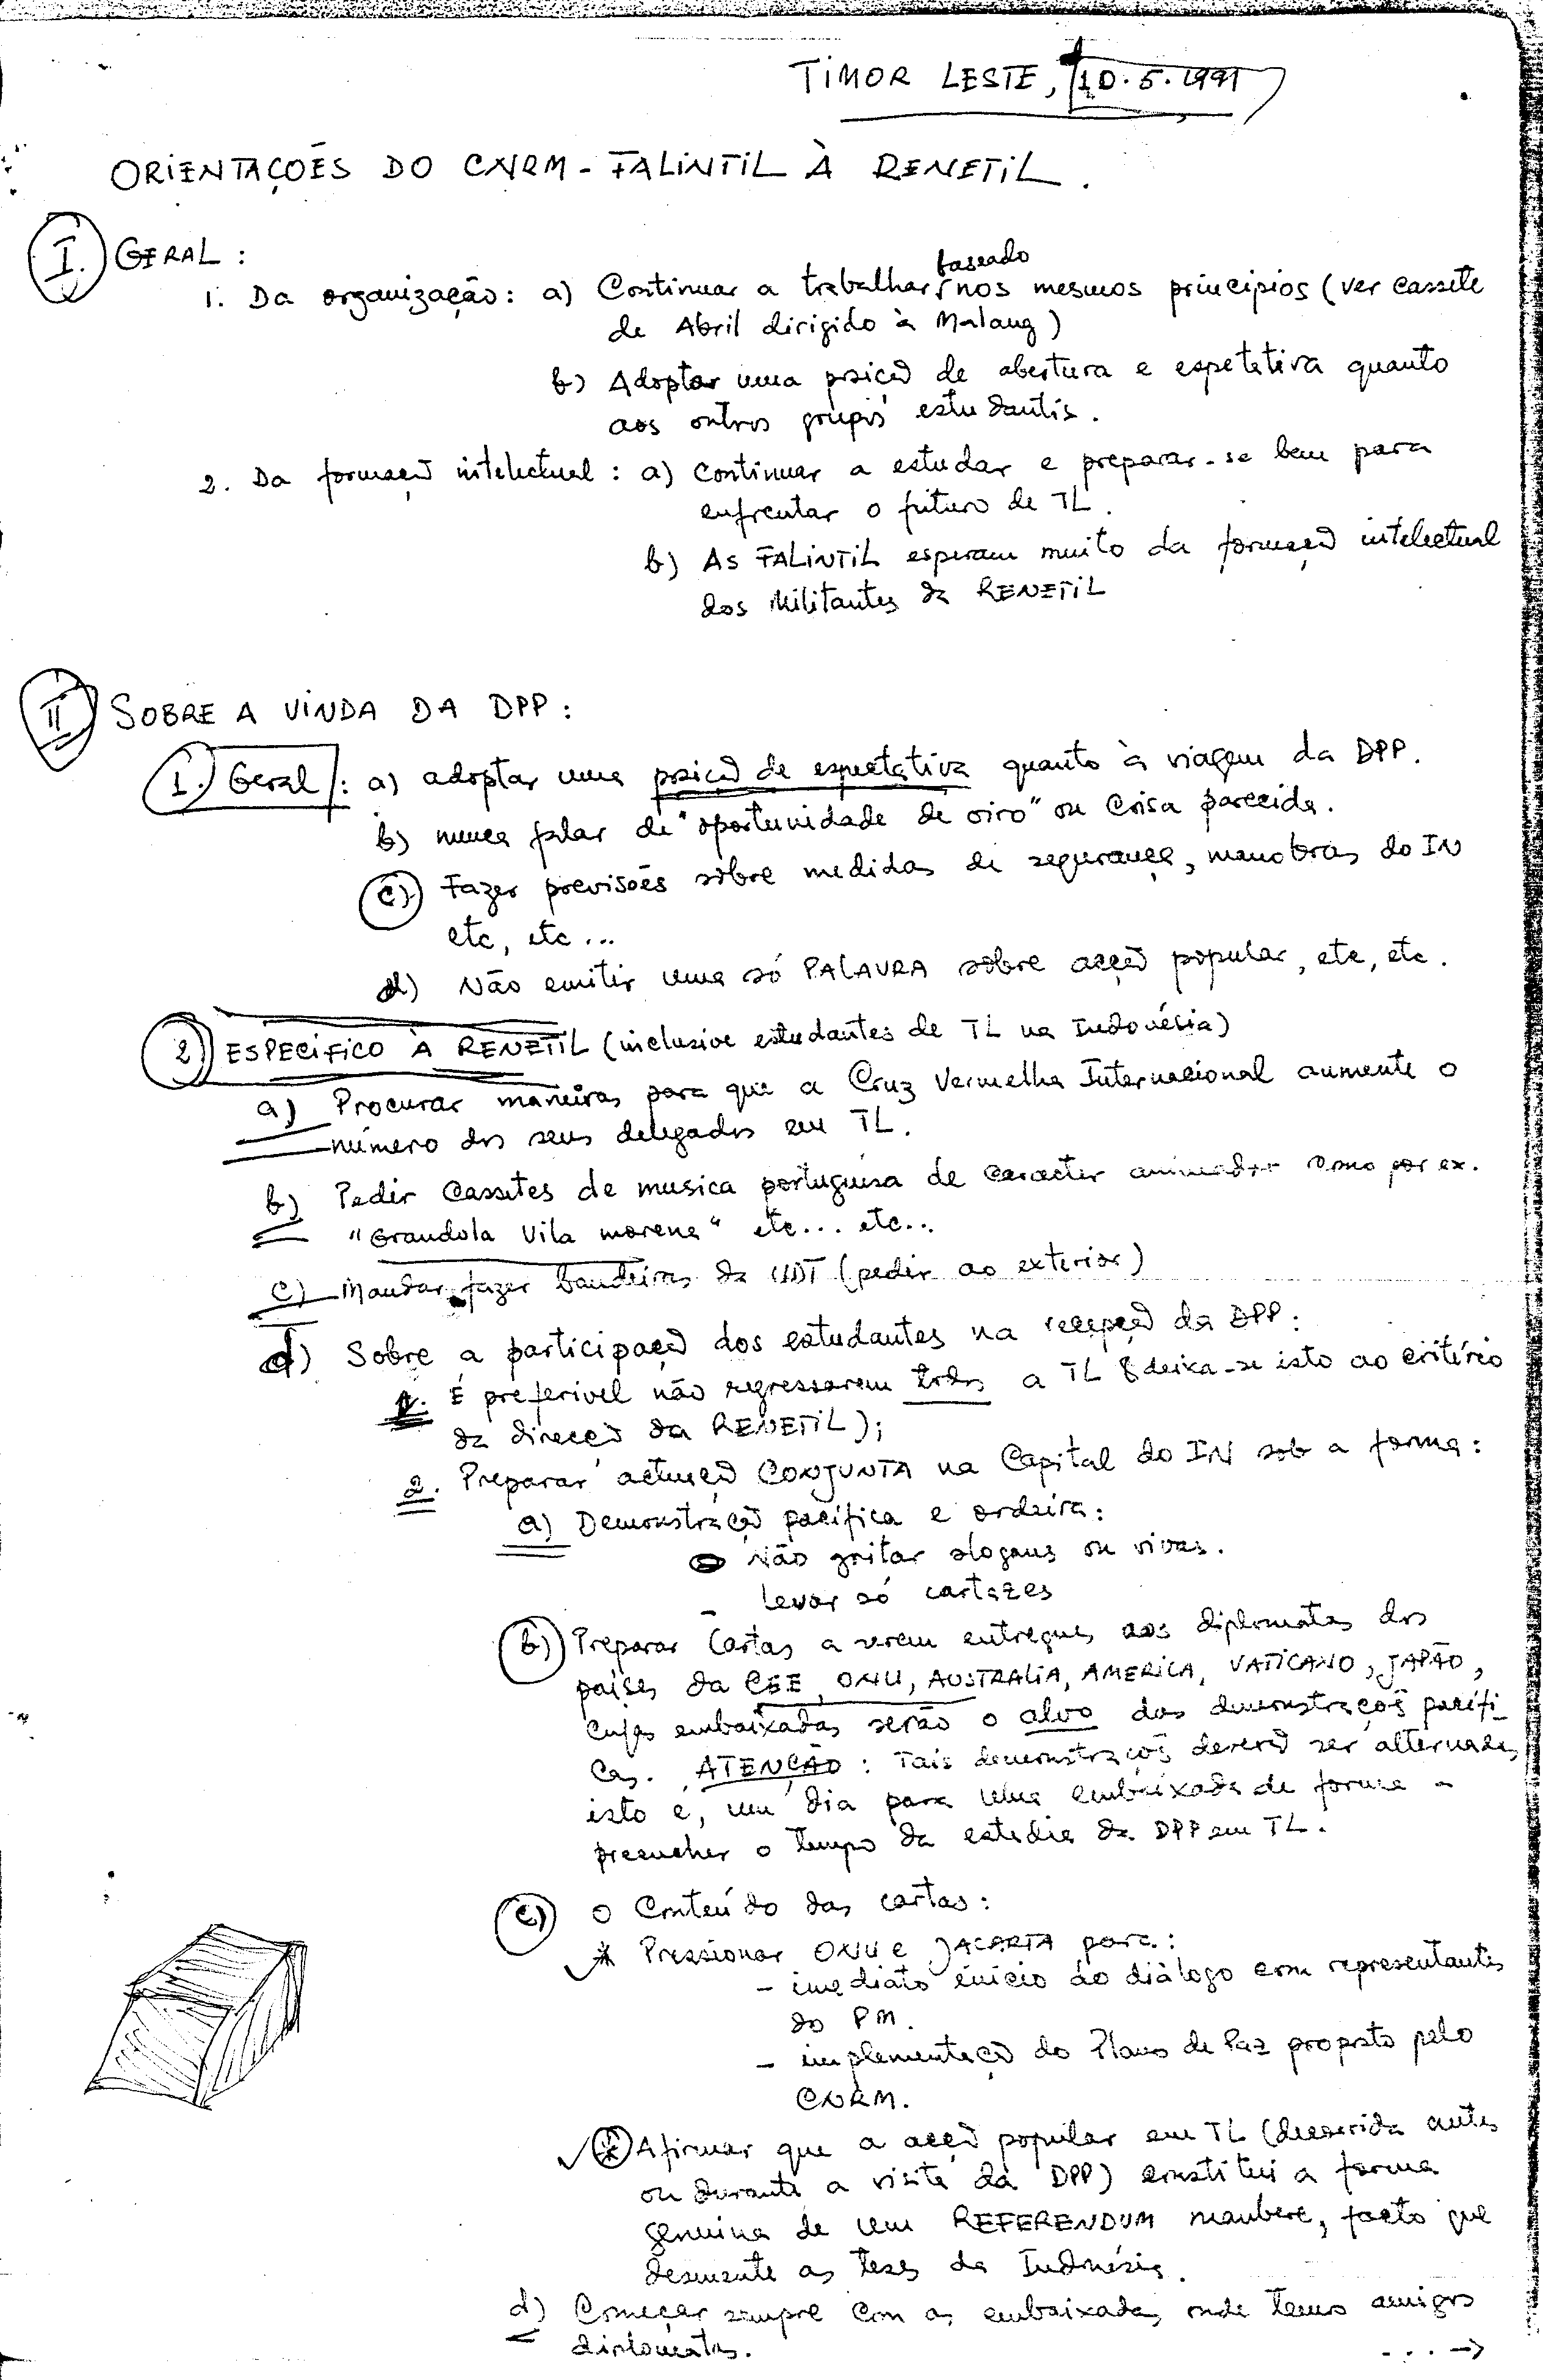 TIMOR LESTE, 10.5.1991
ORIENTAÇOËS DO CNRM - FALINTIL À RENETIL.
I. GERAL:
baseado
1. Da organização: a) Continuar a trabalhar nos mesmos principios (ver cassete
de Abril dirigido à Malang)
b) Adoptar uma posição de abertura e espetativa quanto
aos outros grupos estudantis.
2. Da formação intelectual: a) Continuar a estudar e preparar-se bem para
enfrentar o futuro de TL.
b) As FALINTIL esperam muito da formação intelectual
dos Militantes da RENETIL
II SOBRE A VINDA DA DPP:
1. Geral: a) adoptar uma posição de espectativa quanto à viagem da DPP.
b) nunca falar de "oportunidade de oiro" ou coisa parecida.
c) Fazer previsoẽs sobre medidas de segurança, manobras do IN
etc, etc...
d) Não emitir uma só PALAVRA sobre acção popular, etc, etc.
2) ESPECIFICO À RENETIL (inclusive estudantes de TL na Indonésia)
a) Procurar maneiras para que a Cruz Vermelha Internacional aumente o
número dos seus delegados em TL.
b) Pedir cassetes de musica portuguesa de caracter animador como por ex.
"Grandola Vila morena" etc... etc...
c) Mandar fazer bandeiras da UDT (pedir ao exterior)
d) Sobre a participação dos estudantes na recepção da DPP:
1. É preferivel não regressarem todos a TL (deixa-se isto ao critério
da direcção da RENETIL);
2. Preparar actuação CONJUNTA na Capital do IN sob a forma:
a) Demonstração pacífica e ordeira:
- Não gritar slogans ou vivas.
- Levar só cartazes
b) Preparar Cartas a serem entregues aos diplomatas dos
países da CEE, ONU, AUSTRALIA, AMERICA, VATICANO, JAPÃO,
cujas embaixadas serão o alvo das demonstraçoẽs pacífi
cas. ATENÇÃO: Tais demonstraçoẽs deverão ser alternadas
isto e, um dia para uma embaixada de forma a
preencher o tempo da estadia da DPP em TL.
c) O Conteúdo das cartas:
* Pressionar ONU e JACARTA para:
- imediato início do diálogo com representantes
do PM.
- implementação do Plano de Paz proposto pelo
CNRM.
* Afirmar que a acção popular em TL (decorrida antes
ou durante a visita da DPP) constitui a forma
genuina de um REFERENDUM maubere, facto que
desmente as teses da Indonésia.
d) Começar sempre com as embaixadas onde temos amigos
diplomatas.
... →